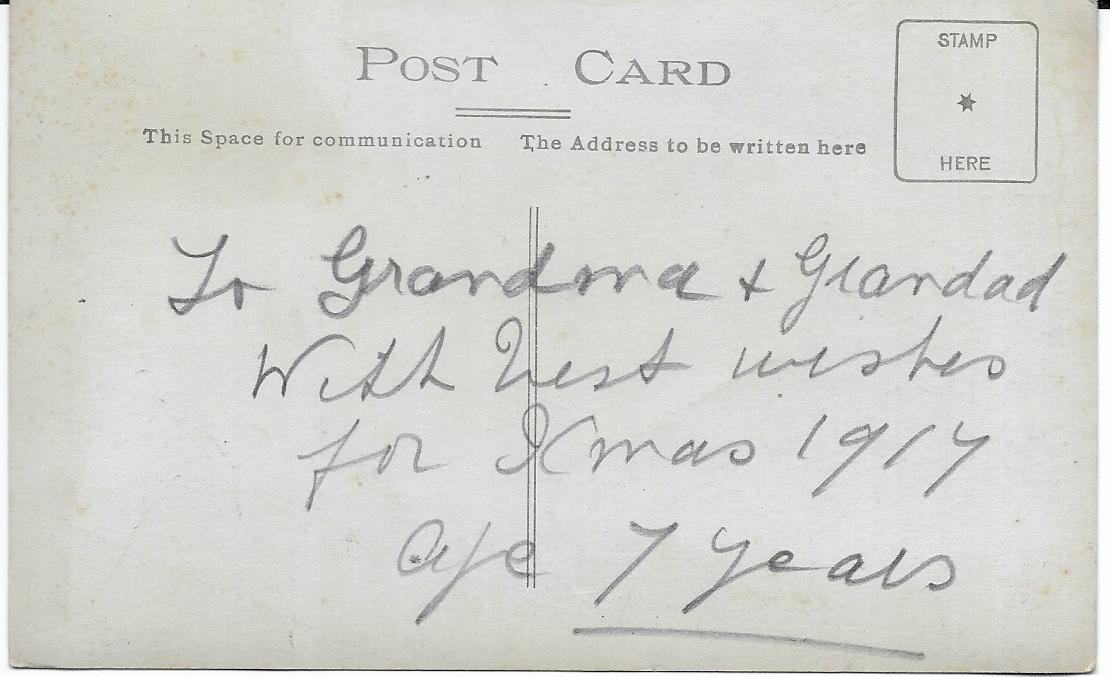 POST CARD
STAMP
HERE
This Space for communication
The Address to be written here
To Grandma & Grandad
With best wishes
for Xmas 1917
age 7 years